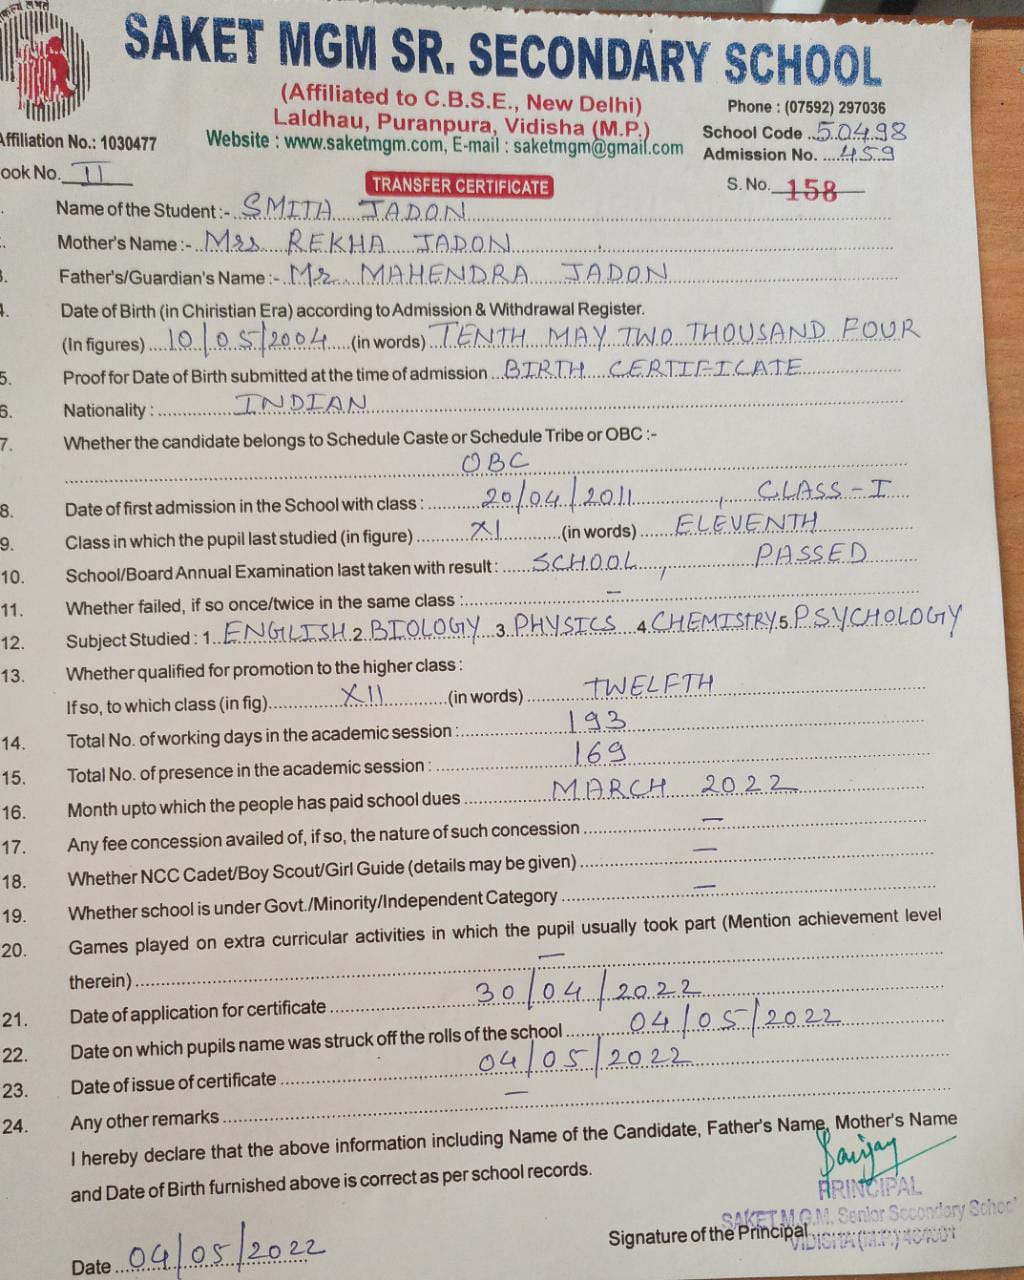 SAKET MGM SR. SECONDARY SCHOOL
(Affiliated to C.B.S.E., New Delhi)
Laldhau, Puranpura, Vidisha (M.P.)
Website : www.saketmgm.com, E-mail : saketmgm@gmail.com
Phone : (07592) 297036
School Code 50498
Admission No. 459
Affiliation No.: 1030477
ook No. II
TRANSFER CERTIFICATE
S. No. 158
Name of the Student :- SMITA JADON
Mother's Name :- Mrs REKHA JADON
3. Father's/Guardian's Name :- Mr MAHENDRA JADON
4. Date of Birth (in Chiristian Era) according to Admission & Withdrawal Register.
(In figures) 10/05/2004 (in words) TENTH MAY TWO THOUSAND FOUR
5. Proof for Date of Birth submitted at the time of admission BIRTH CERTIFICATE
6. Nationality : INDIAN
7. Whether the candidate belongs to Schedule Caste or Schedule Tribe or OBC :-
OBC
8. Date of first admission in the School with class : 20/04/2011, CLASS-I
9. Class in which the pupil last studied (in figure) XI (in words) ELEVENTH
10. School/Board Annual Examination last taken with result : SCHOOL, PASSED
11. Whether failed, if so once/twice in the same class : —
12. Subject Studied : 1. ENGLISH 2 BIOLOGY 3 PHYSICS 4 CHEMISTRY 5 PSYCHOLOGY
13. Whether qualified for promotion to the higher class :
If so, to which class (in fig) XII (in words) TWELFTH
14. Total No. of working days in the academic session : 193
15. Total No. of presence in the academic session : 169
16. Month upto which the people has paid school dues MARCH 2022
17. Any fee concession availed of, if so, the nature of such concession —
18. Whether NCC Cadet/Boy Scout/Girl Guide (details may be given) —
19. Whether school is under Govt./Minority/Independent Category —
20. Games played on extra curricular activities in which the pupil usually took part (Mention achievement level
therein) —
21. Date of application for certificate 30/04/2022
22. Date on which pupils name was struck off the rolls of the school 04/05/2022
23. Date of issue of certificate 04/05/2022
24. Any other remarks —
I hereby declare that the above information including Name of the Candidate, Father's Name, Mother's Name
and Date of Birth furnished above is correct as per school records.
Sanjay
PRINCIPAL
SAKET M.G.M. Senior Secondary School
VIDISHA (M.P.) 464001
Signature of the Principal
Date 04/05/2022